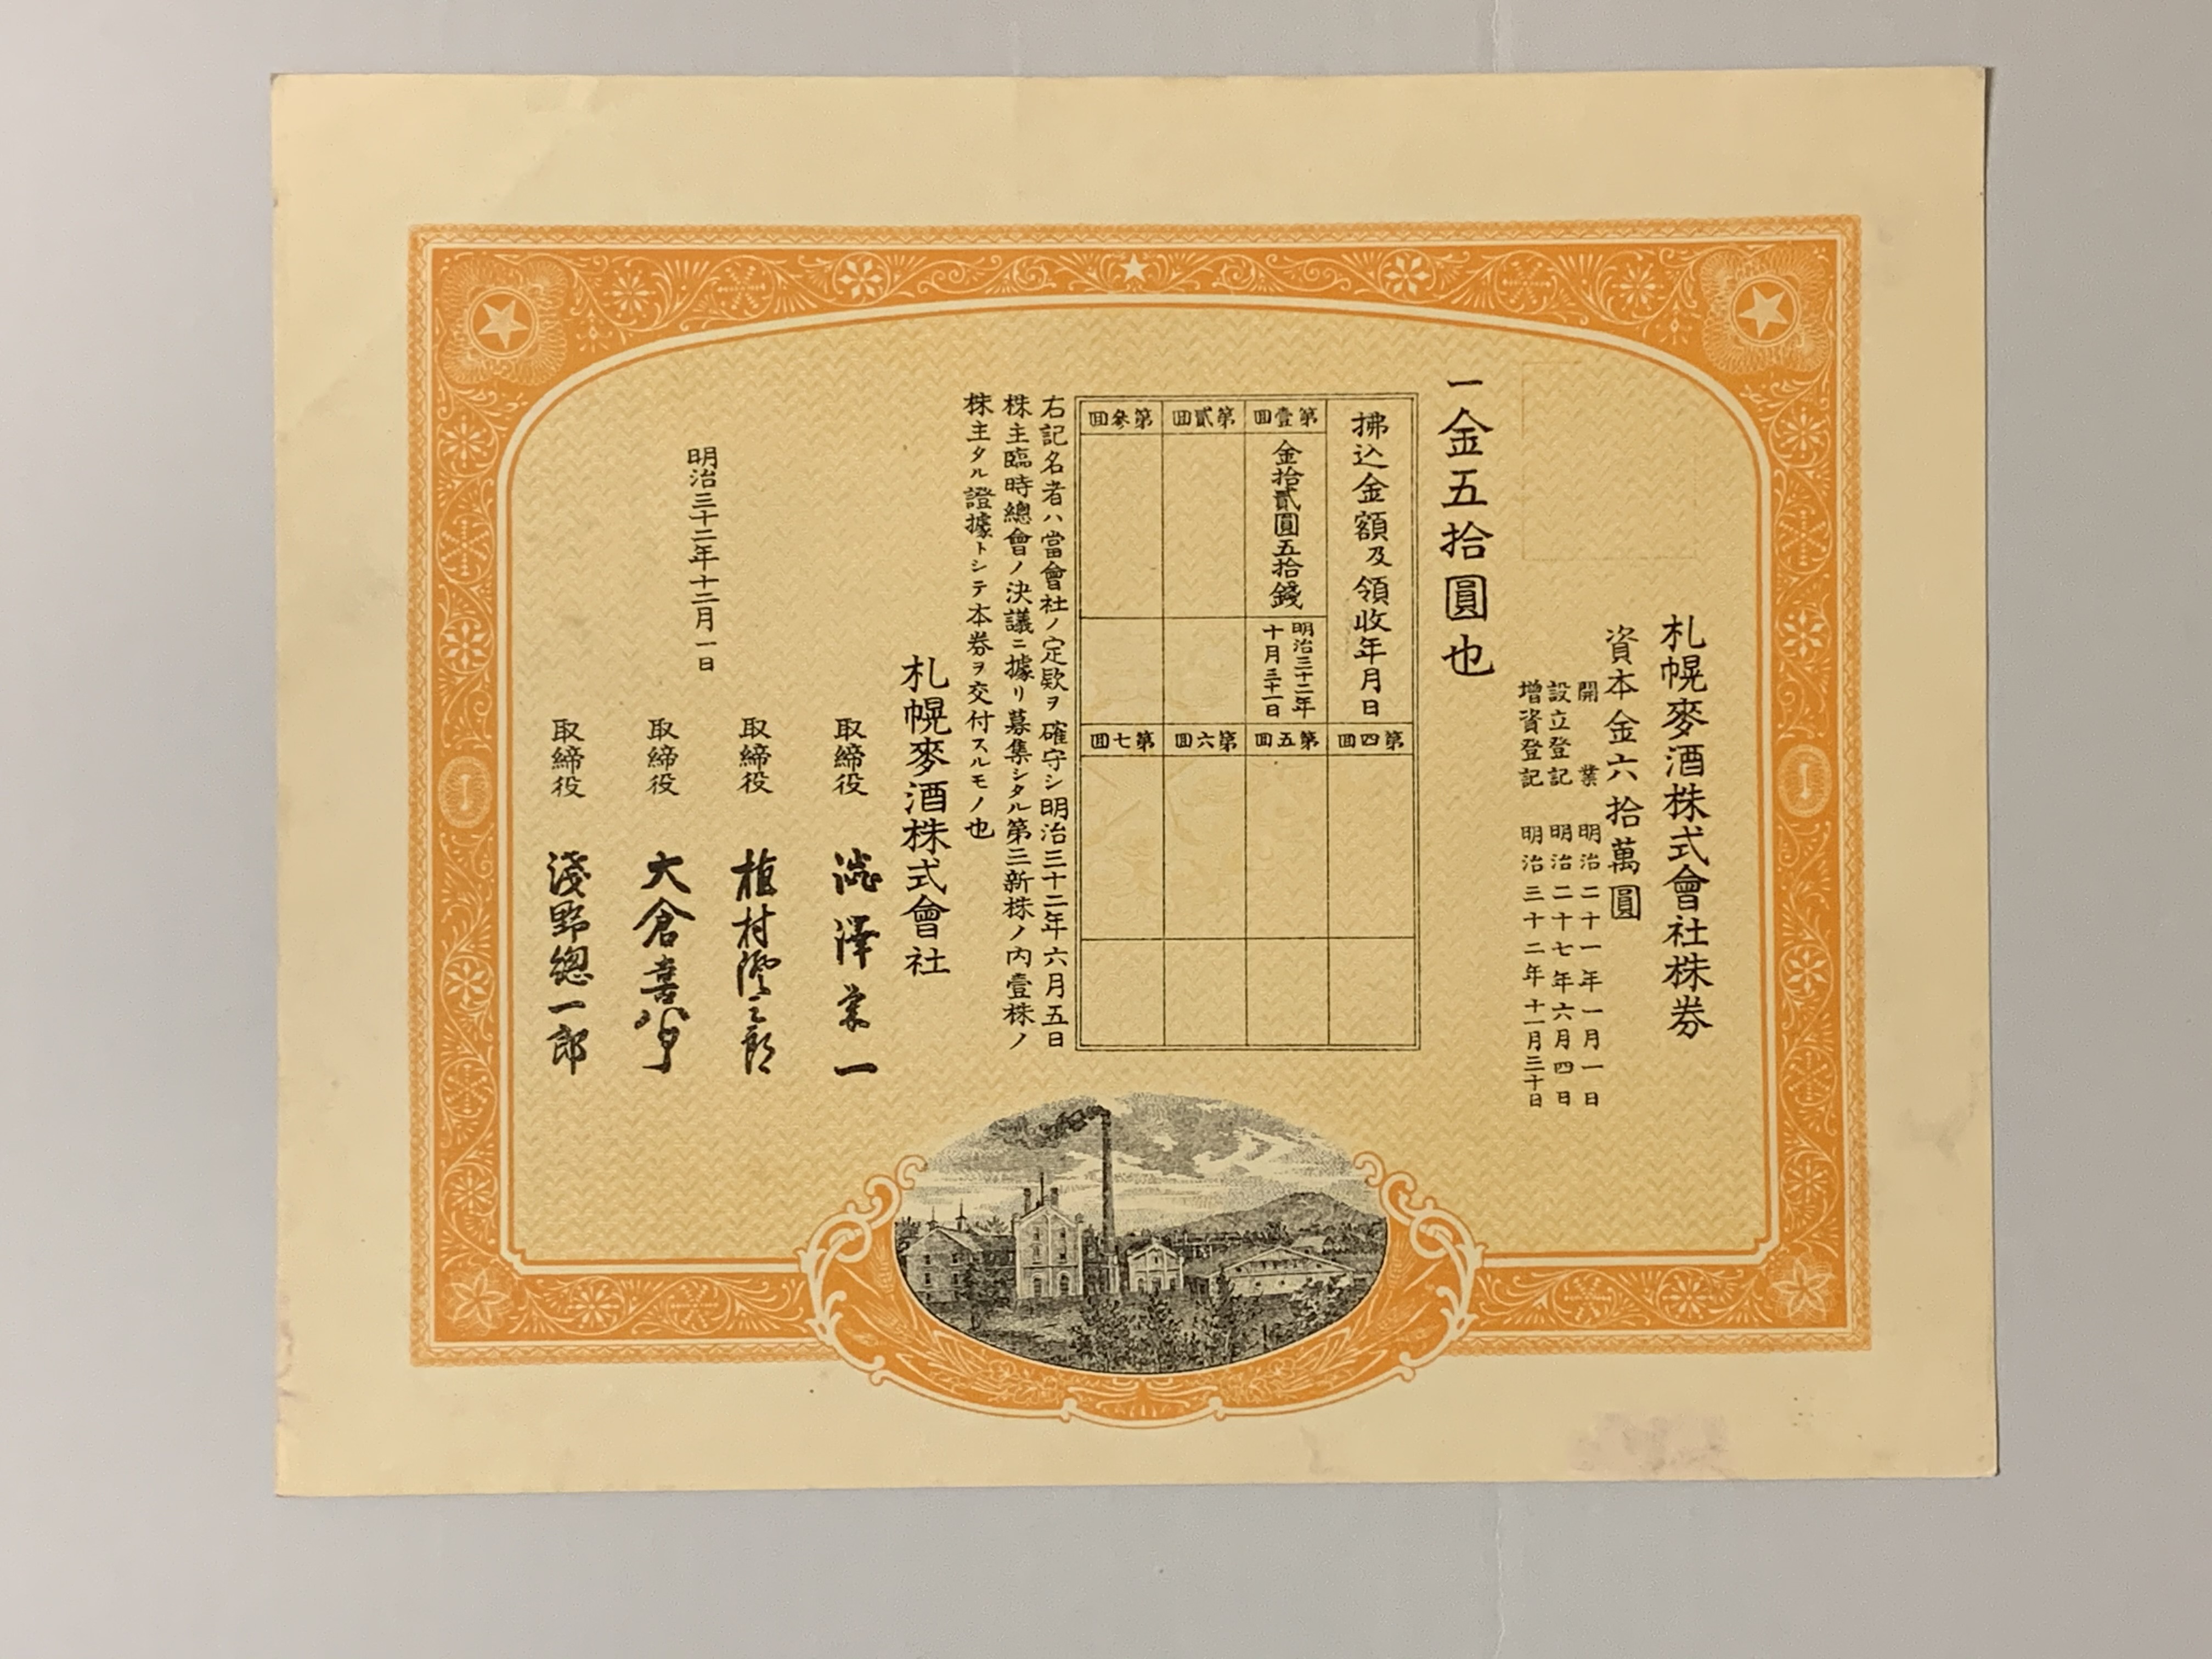 札幌麥酒株式會社株券
資本金六拾萬圓
開業 明治二十一年一月一日
設立登記 明治二十七年六月四日
增資登記 明治三十二年十一月三十日
一金五拾圓也
拂込金額及領收年月日
第壹回
金拾貳圓五拾錢
明治三十二年
十月三十一日
第貳回
第參回
第四回
第五回
第六回
第七回
右記名者ハ當會社ノ定欵ヲ確守シ明治三十二年六月五日
株主臨時總會ノ決議ニ據リ募集シタル第三新株ノ内壹株ノ
株主タル證據トシテ本券ヲ交付スルモノ也
札幌麥酒株式會社
明治三十二年十二月一日
取締役 澁澤榮一
取締役 植村澄三郎
取締役 大倉喜八郎
取締役 淺野總一郎